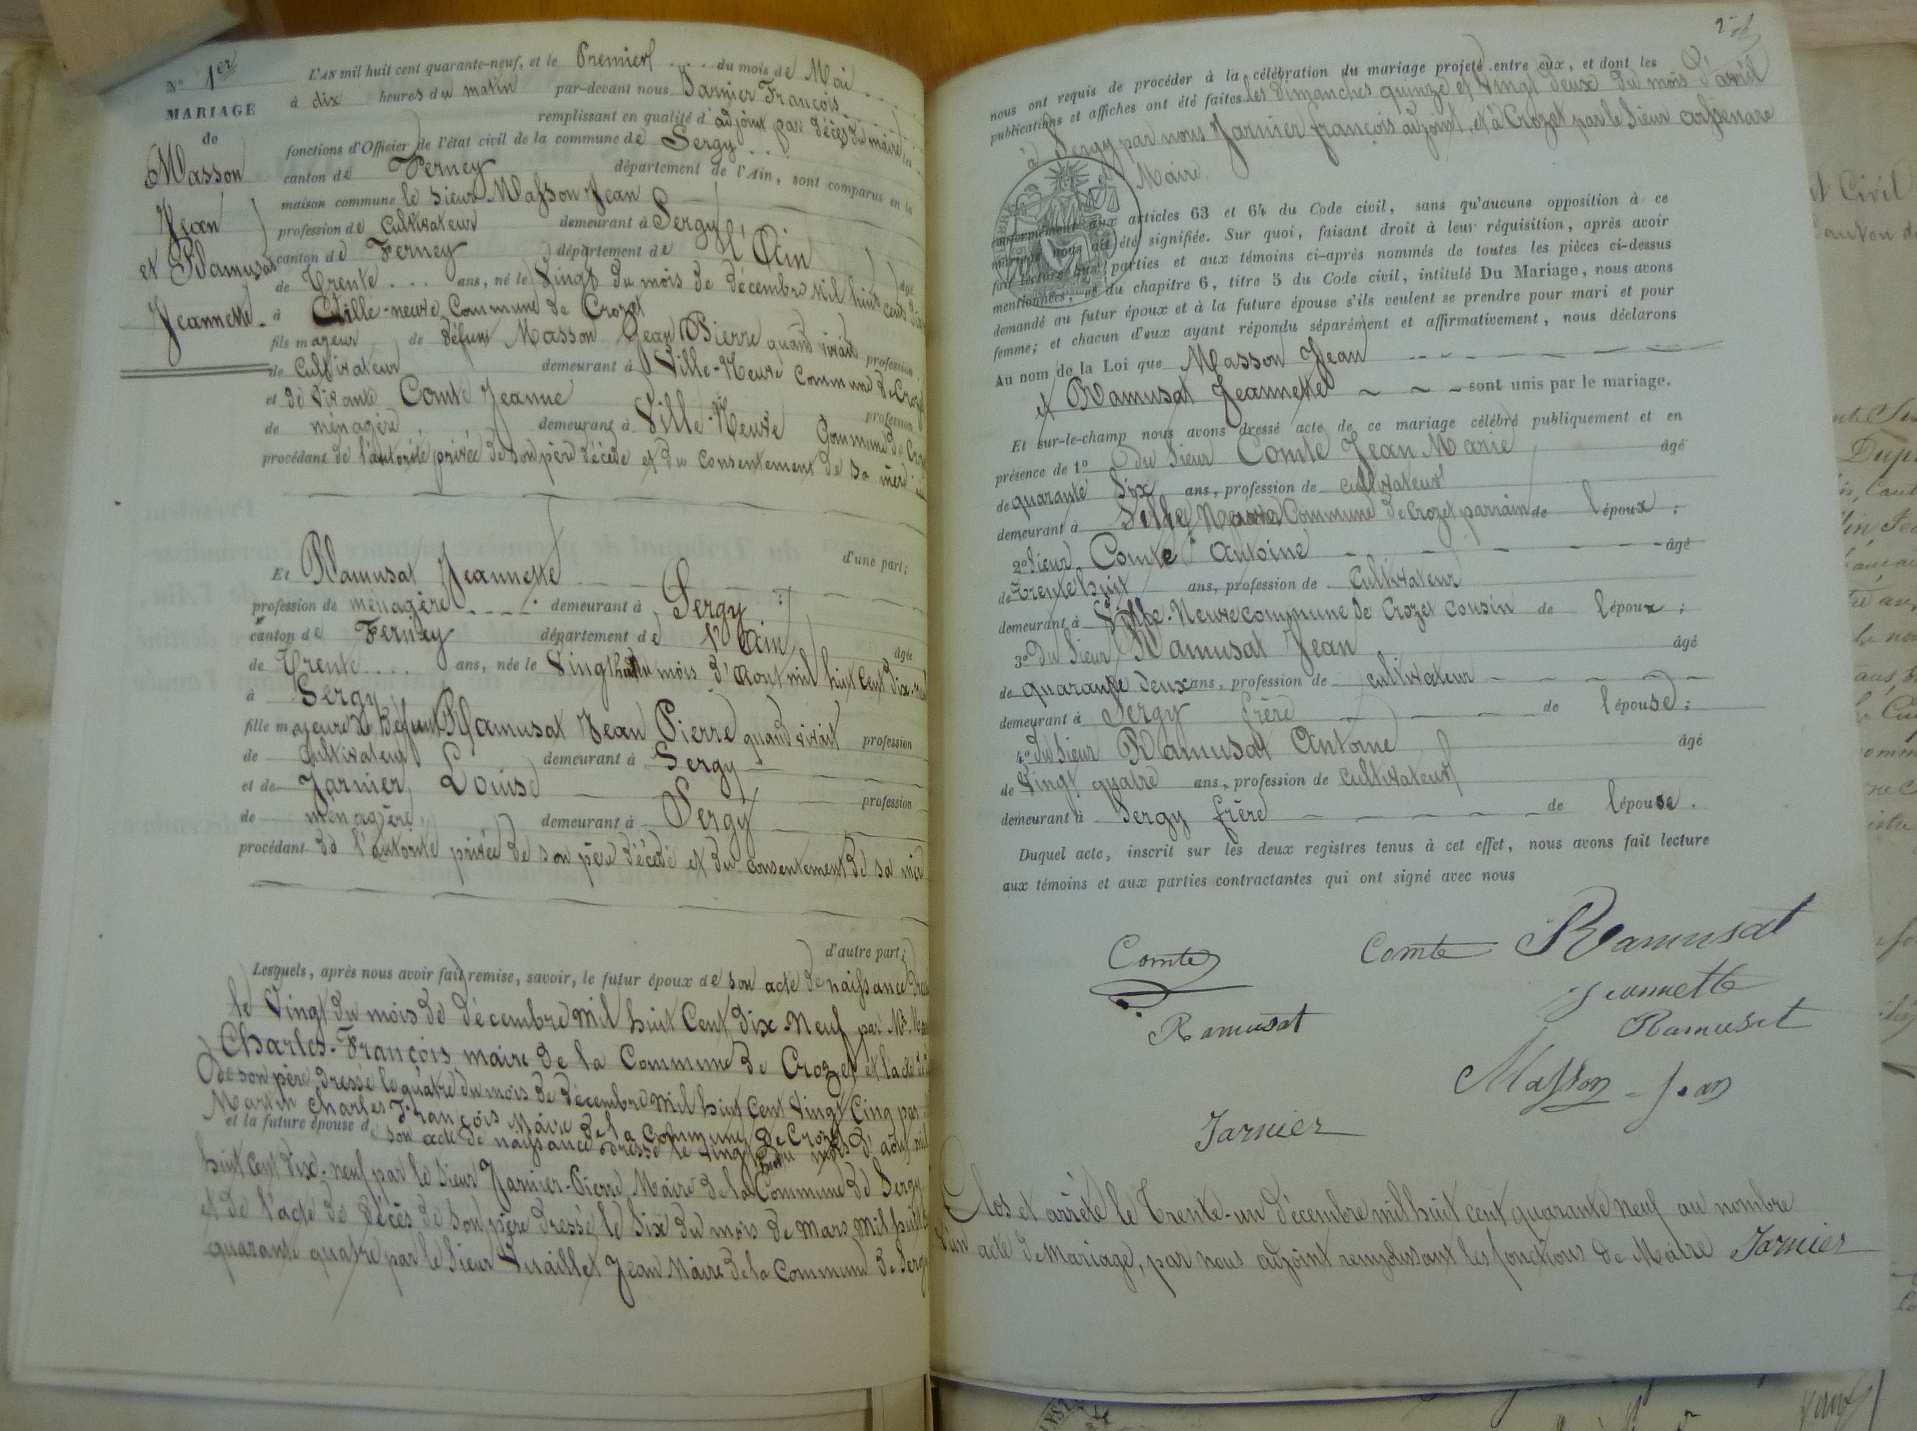 N° 1er
MARIAGE
de
Masson
Jean
et Ramusat
Jeannette
L'AN mil huit cent quarante-neuf, et le Premier du mois de Mai
à dix heures du matin par-devant nous Jarnier François
remplissant en qualité d'adjoint par décès du maire les
fonctions d'Officier de l'état civil de la commune de Sergy
canton de Ferney département de l'Ain, sont comparus en la
maison commune le sieur Masson Jean
profession de cultivateur demeurant à Sergy
canton de Ferney département de l'Ain âgé
de Trente ans, né le Vingt du mois de décembre mil huit cent
à Ville-neuve Commune de Crozet
fils majeur de défunt Masson Jean Pierre quand vivait profession
de Cultivateur demeurant à Ville-Neuve Commune de Crozet
et de vivante Comte Jeanne profession
de ménagère demeurant à Ville-Neuve Commune de
procédant de l'autorité privée de son père décédé et du consentement de sa mère
d'une part;
Et Ramusat Jeannette
profession de ménagère demeurant à Sergy
canton de Ferney département de l'Ain âgée
de Trente ans, née le Vingt huit du mois d'Aout mil huit cent dix-
à Sergy
fille majeure de Défunt Ramusat Jean Pierre quand vivait profession
de Cultivateur demeurant à Sergy
et de Jarnier Louise profession
de ménagère demeurant à Sergy
procédant de l'autorité privée de son père décédé et du consentement de sa mère
d'autre part;
Lesquels, après nous avoir fait remise, savoir, le futur époux de son acte de naissance
le Vingt du mois de décembre mil huit Cent dix-Neuf par Mr
Charles-François maire de la Commune de Crozet et l'acte de
de son père dressé le quatre du mois de décembre mil huit Cent Vingt Cinq par
Martin Charles François Maire de la Commune de Crozet
et la future épouse de son acte de naissance dressé le vingt huit du mois d'août mil
huit cent dix-neuf par le Sieur Jarnier-Pierre Maire de la Commune de Sergy
et de l'acte de décès de son père dressé le Six du mois de mars mil huit
quarante quatre par le Sieur Vuaillet Jean Maire de la Commune de Sergy
nous ont requis de procéder à la célébration du mariage projeté entre eux, et dont les
publications et affiches ont été faites les dimanches quinze et Vingt deux du mois d'avril
à Sergy par nous Jarnier françois adjoint, et à Crozet par le Sieur
Maire
conformément aux articles 63 et 64 du Code civil, sans qu'aucune opposition à ce
mariage nous ait été signifiée. Sur quoi, faisant droit à leur réquisition, après avoir
fait lecture aux parties et aux témoins ci-après nommés de toutes les pièces ci-dessus
mentionnées, et du chapitre 6, titre 5 du Code civil, intitulé Du Mariage, nous avons
demandé au futur époux et à la future épouse s'ils veulent se prendre pour mari et pour
femme; et chacun d'eux ayant répondu séparément et affirmativement, nous déclarons
Au nom de la Loi que Masson Jean
et Ramusat Jeannette sont unis par le mariage.
Et sur-le-champ nous avons dressé acte de ce mariage célébré publiquement et en
présence de 1° du Sieur Comte Jean Marie âgé
de quarante Six ans, profession de cultivateur
demeurant à Ville Neuve Commune de Crozet parrain de l'époux;
2° Sieur Comte Antoine âgé
de Trente huit ans, profession de Cultivateur
demeurant à Ville-Neuve commune de Crozet cousin de l'époux;
3° du Sieur Ramusat Jean âgé
de quarante deux ans, profession de cultivateur
demeurant à Sergy frère de l'épouse;
4° du Sieur Ramusat Antoine âgé
de Vingt quatre ans, profession de cultivateur
demeurant à Sergy frère de l'épouse.
Duquel acte, inscrit sur les deux registres tenus à cet effet, nous avons fait lecture
aux témoins et aux parties contractantes qui ont signé avec nous
Comte Comte Ramusat
Jeannette
Ramusat Ramusat
Masson Jean
Jarnier
Clos et arrêté le Trente-un décembre mil huit cent quarante neuf au nombre
d'un acte de mariage, par nous adjoint remplissant les fonctions de Maire Jarnier